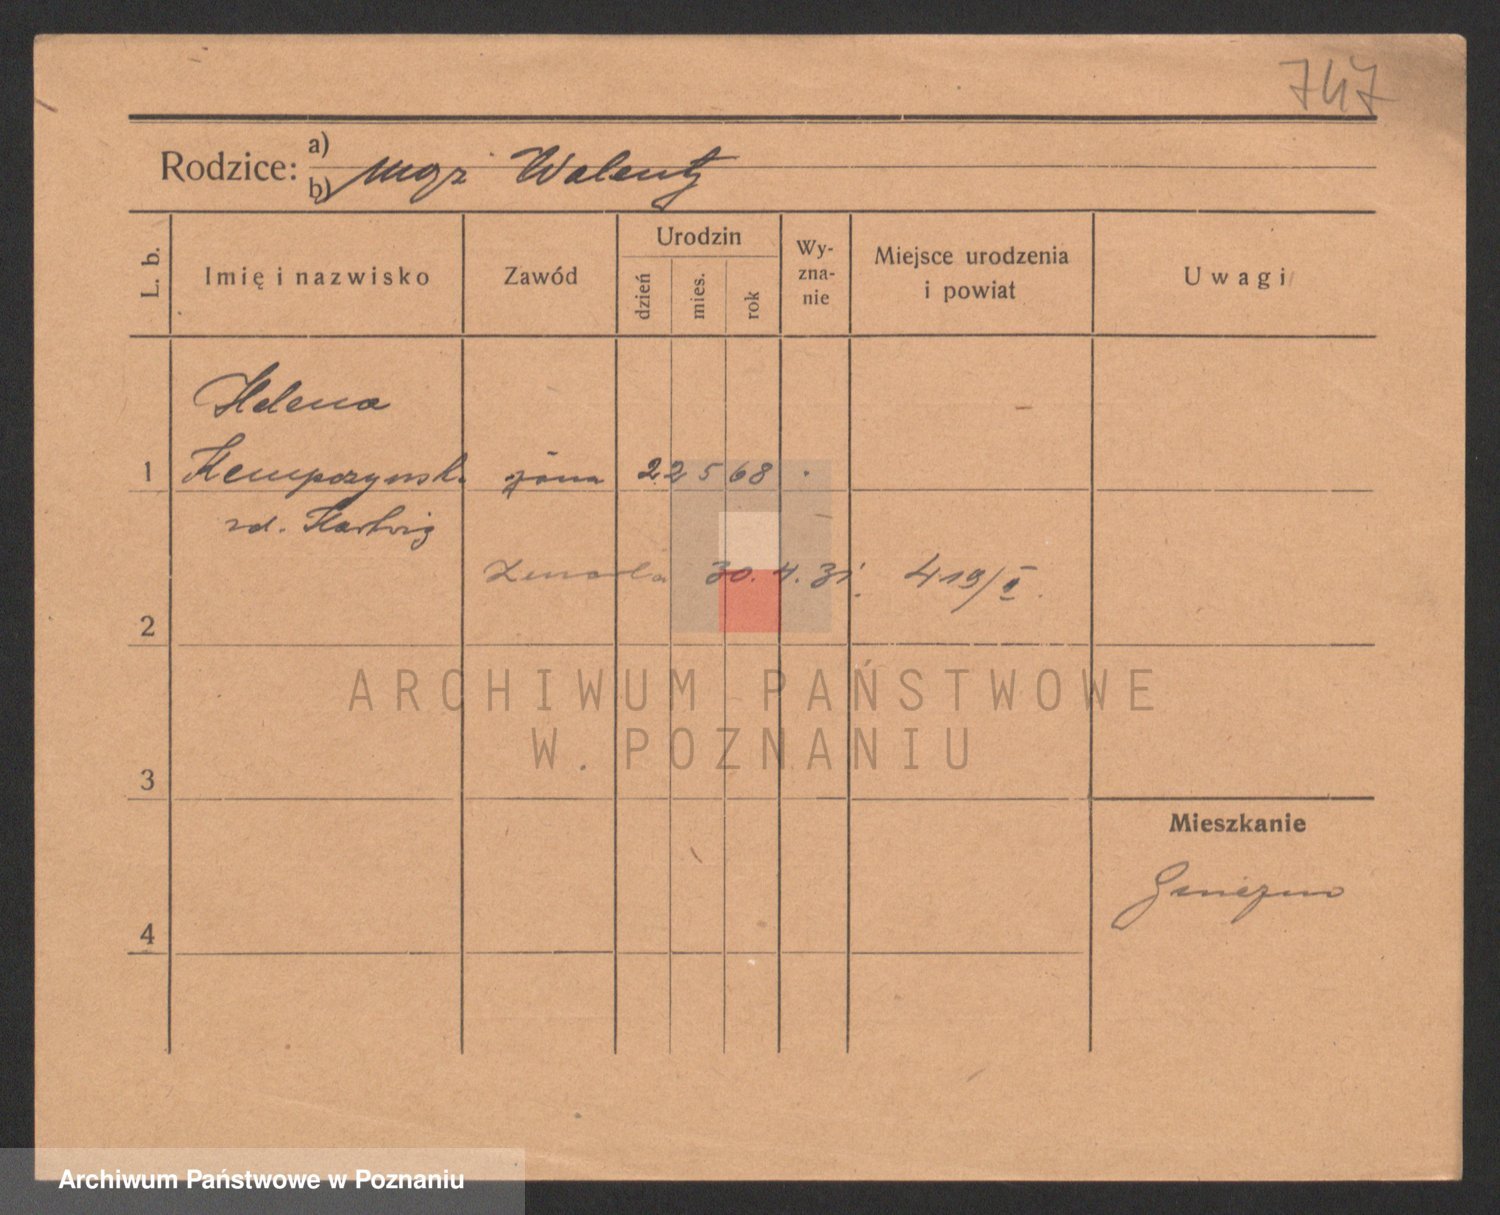 747
Rodzice: a)
b) mgr Walenty
L. b.
Imię i nazwisko
Zawód
Urodzin
dzień
mies.
rok
Wy-
zna-
nie
Miejsce urodzenia
i powiat
Uwagi
Helena
1 Kempczynsk. żona 22 5 68
zd. Hartwig
Zmarła 30. 4. 31. 419/II.
2
ARCHIWUM PAŃSTWOWE
W POZNANIU
3
Mieszkanie
Gniezno
4
Archiwum Państwowe w Poznaniu